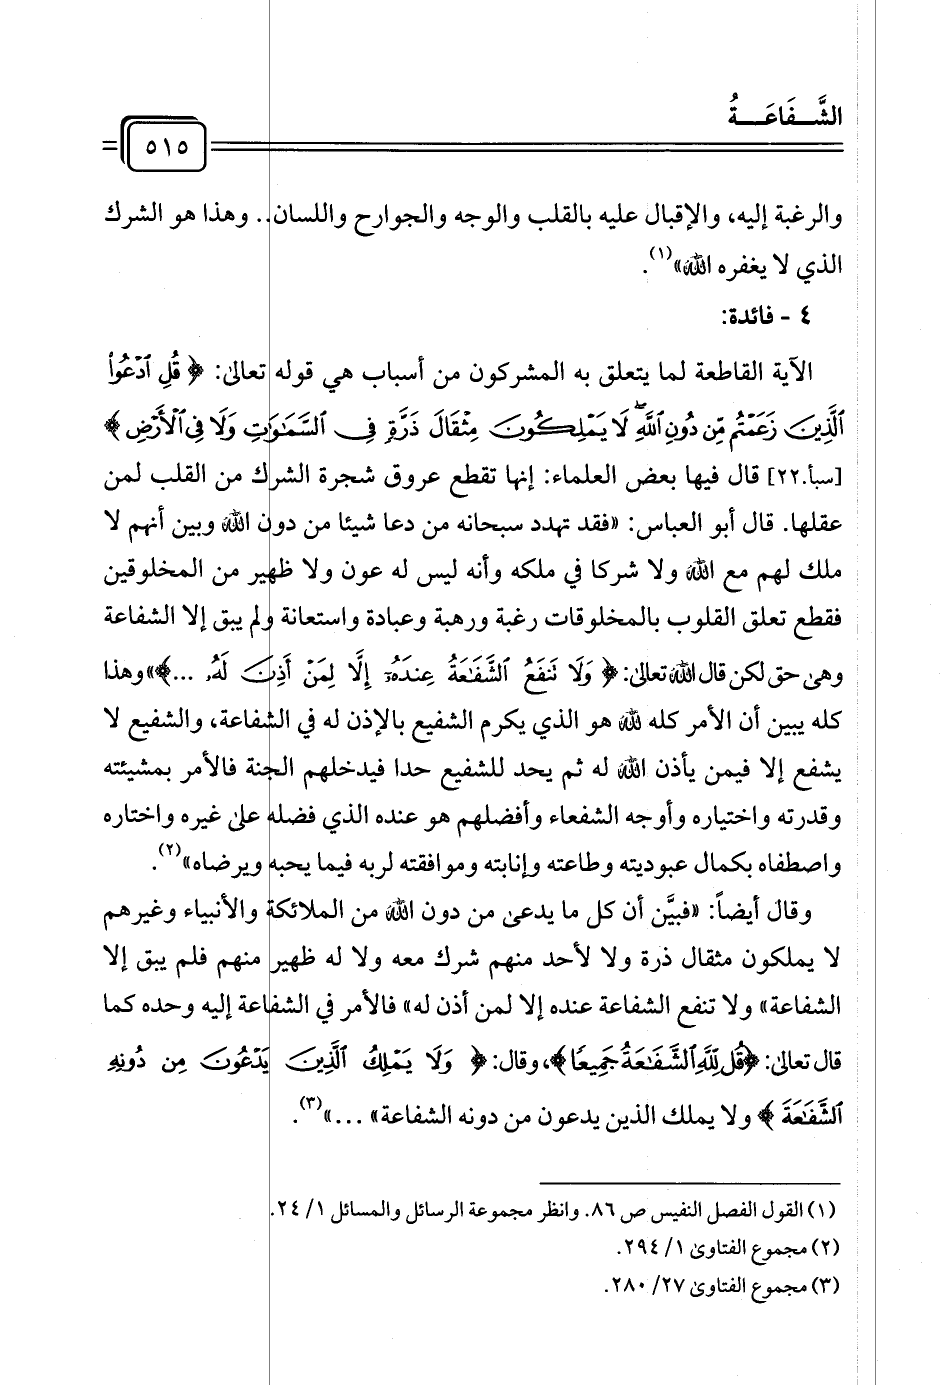 الشَّـــفَاعَـــةُ
٥١٥
والرغبة إليه، والإقبال عليه بالقلب والوجه والجوارح واللسان.. وهذا هو الشرك
الذي لا يغفره الله»(١).
٤ - فائدة:
الآية القاطعة لما يتعلق به المشركون من أسباب هي قوله تعالىٰ: ﴿ قُلِ ٱدْعُوا۟
ٱلَّذِينَ زَعَمْتُم مِّن دُونِ ٱللَّهِ ۖ لَا يَمْلِكُونَ مِثْقَالَ ذَرَّةٍ فِى ٱلسَّمَـٰوَٰتِ وَلَا فِى ٱلْأَرْضِ ﴾
[سبأ.٢٢] قال فيها بعض العلماء: إنها تقطع عروق شجرة الشرك من القلب لمن
عقلها. قال أبو العباس: «فقد تهدد سبحانه من دعا شيئا من دون الله وبين أنهم لا
ملك لهم مع الله ولا شركا في ملكه وأنه ليس له عون ولا ظهير من المخلوقين
فقطع تعلق القلوب بالمخلوقات رغبة ورهبة وعبادة واستعانة ولم يبق إلا الشفاعة
وهىٰ حق لكن قال الله تعالىٰ: ﴿ وَلَا تَنفَعُ ٱلشَّفَـٰعَةُ عِندَهُۥٓ إِلَّا لِمَنْ أَذِنَ لَهُۥ ...﴾» وهذا
كله يبين أن الأمر كله لله هو الذي يكرم الشفيع بالإذن له في الشفاعة، والشفيع لا
يشفع إلا فيمن يأذن الله له ثم يحد للشفيع حدا فيدخلهم الجنة فالأمر بمشيئته
وقدرته واختياره وأوجه الشفعاء وأفضلهم هو عنده الذي فضله علىٰ غيره واختاره
واصطفاه بكمال عبوديته وطاعته وإنابته وموافقته لربه فيما يحبه ويرضاه»(٢).
وقال أيضاً: «فبيَّن أن كل ما يدعى من دون الله من الملائكة والأنبياء وغيرهم
لا يملكون مثقال ذرة ولا لأحد منهم شرك معه ولا له ظهير منهم فلم يبق إلا
الشفاعة» ولا تنفع الشفاعة عنده إلا لمن أذن له» فالأمر في الشفاعة إليه وحده كما
قال تعالىٰ: ﴿قُل لِّلَّهِ ٱلشَّفَـٰعَةُ جَمِيعًا﴾، وقال: ﴿ وَلَا يَمْلِكُ ٱلَّذِينَ يَدْعُونَ مِن دُونِهِ
ٱلشَّفَـٰعَةَ ﴾ ولا يملك الذين يدعون من دونه الشفاعة» ...»(٣).
(١) القول الفصل النفيس ص ٨٦. وانظر مجموعة الرسائل والمسائل ١/ ٢٤.
(٢) مجموع الفتاوىٰ ١/ ٢٩٤.
(٣) مجموع الفتاوىٰ ٢٧/ ٢٨٠.